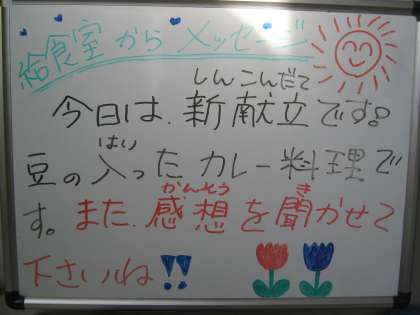 給食室からメッセージ
しんこんだて
今日は.新献立です。
はい
豆の入ったカレー料理で
かんそう き
す。また.感想を聞かせて
下さいね!!